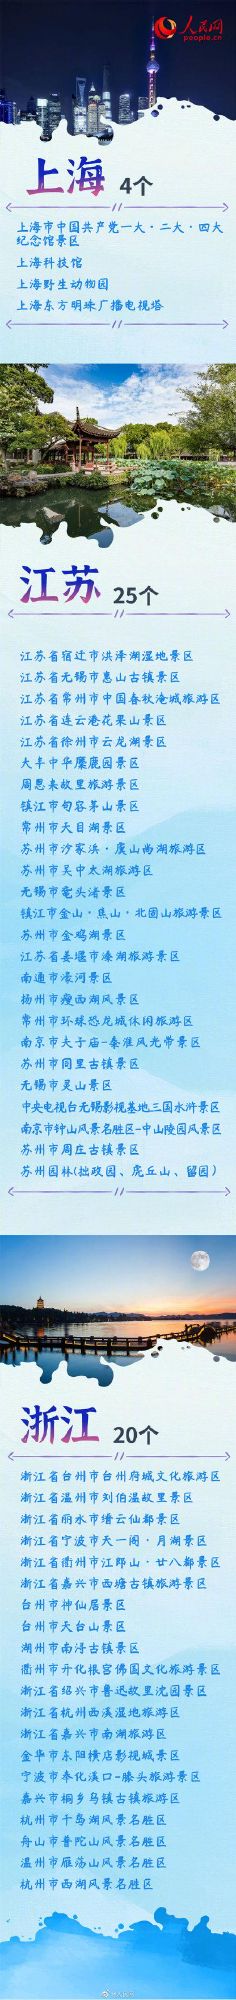 人民网
people.cn
上海 4个
上海市中国共产党一大·二大·四大
纪念馆景区
上海科技馆
上海野生动物园
上海东方明珠广播电视塔
江苏 25个
江苏省宿迁市洪泽湖湿地景区
江苏省无锡市惠山古镇景区
江苏省常州市中国春秋淹城旅游区
江苏省连云港花果山景区
江苏省徐州市云龙湖景区
大丰中华麋鹿园景区
周恩来故里旅游景区
镇江市句容茅山景区
常州市天目湖景区
苏州市沙家浜·虞山尚湖旅游区
苏州市吴中太湖旅游区
无锡市鼋头渚景区
镇江市金山·焦山·北固山旅游景区
苏州市金鸡湖景区
江苏省姜堰市溱湖旅游景区
南通市濠河景区
扬州市瘦西湖风景区
常州市环球恐龙城休闲旅游区
南京市夫子庙-秦淮风光带景区
苏州市同里古镇景区
无锡市灵山景区
中央电视台无锡影视基地三国水浒景区
南京市钟山风景名胜区-中山陵园风景区
苏州市周庄古镇景区
苏州园林(拙政园、虎丘山、留园)
浙江 20个
浙江省台州市台州府城文化旅游区
浙江省温州市刘伯温故里景区
浙江省丽水市缙云仙都景区
浙江省宁波市天一阁·月湖景区
浙江省衢州市江郎山·廿八都景区
浙江省嘉兴市西塘古镇旅游景区
台州市神仙居景区
台州市天台山景区
湖州市南浔古镇景区
衢州市开化根宫佛国文化旅游景区
浙江省绍兴市鲁迅故里沈园景区
浙江省杭州西溪湿地旅游区
浙江省嘉兴市南湖旅游区
金华市东阳横店影视城景区
宁波市奉化溪口-滕头旅游景区
嘉兴市桐乡乌镇古镇旅游区
杭州市千岛湖风景名胜区
舟山市普陀山风景名胜区
温州市雁荡山风景名胜区
杭州市西湖风景名胜区
@人民网